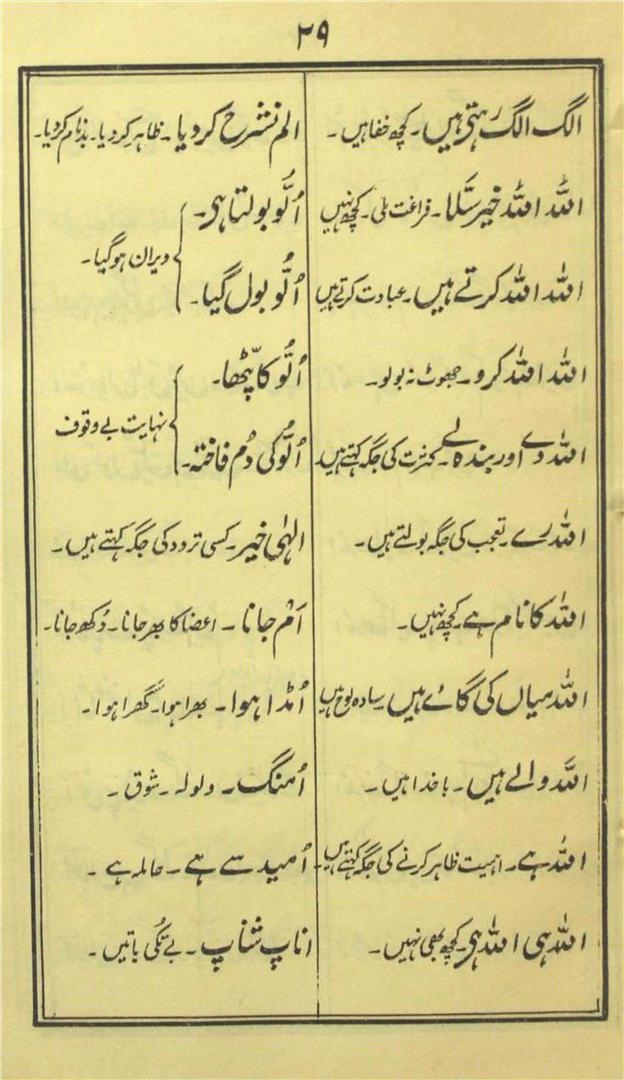 ۲۹
الگ الگ رہتی ہیں۔ کچھ خفا ہیں۔
اللہ اللہ خیر سَلّا۔ فراغت ملی۔ کچھ نہیں
اللہ اللہ کرتے ہیں۔ عبادت کرتے ہیں
اللہ اللہ کرو۔ جھوٹ نہ بولو۔
اللہ دے اور بندہ لے۔ کثرت کی جگہ کہتے ہیں۔
اللہ رے۔ تعجب کی جگہ بولتے ہیں۔
اللہ کا نام ہے۔ کچھ نہیں۔
اللہ میاں کی گائے ہیں۔ سادہ لوح ہیں
اللہ والے ہیں۔ با خدا ہیں۔
اللہ ہے۔ اہمیت ظاہر کرنے کی جگہ کہتے ہیں۔
اللہ ہی اللہ ہی۔ کچھ بھی نہیں۔
الم نشرح کر دیا۔ ظاہر کر دیا۔ بدنام کر دیا۔
اُلّو بولتا ہی۔
اُلّو بول گیا۔
ویران ہو گیا۔
اُلّو کا پٹھا۔
اُلّو کی دُم فاختہ۔
نہایت بے وقوف
الہٰی خیر۔ کسی تردد کی جگہ کہتے ہیں۔
اَمْ جانا۔ اعضا کا بھر جانا۔ دُکھ جانا۔
اُمڈا ہوا۔ بھرا ہوا۔ گھرا ہوا۔
اُمنگ۔ ولولہ۔ شوق۔
اُمید سے ہے۔ حاملہ ہے۔
اناپ شناپ۔ بے تُکی باتیں۔